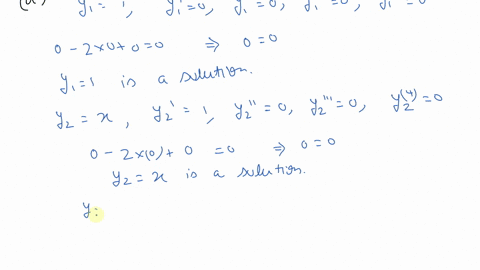 (a) y₁ = 1, y₁' = 0, y₁'' = 0, y₁''' = 0, y₁⁽⁴⁾ = 0
0 - 2×0 + 0 = 0 ⇒ 0 = 0
y₁ = 1 is a solution.
y₂ = x, y₂' = 1, y₂'' = 0, y₂''' = 0, y₂⁽⁴⁾ = 0
0 - 2×(0) + 0 = 0 ⇒ 0 = 0
y₂ = x is a solution.
y